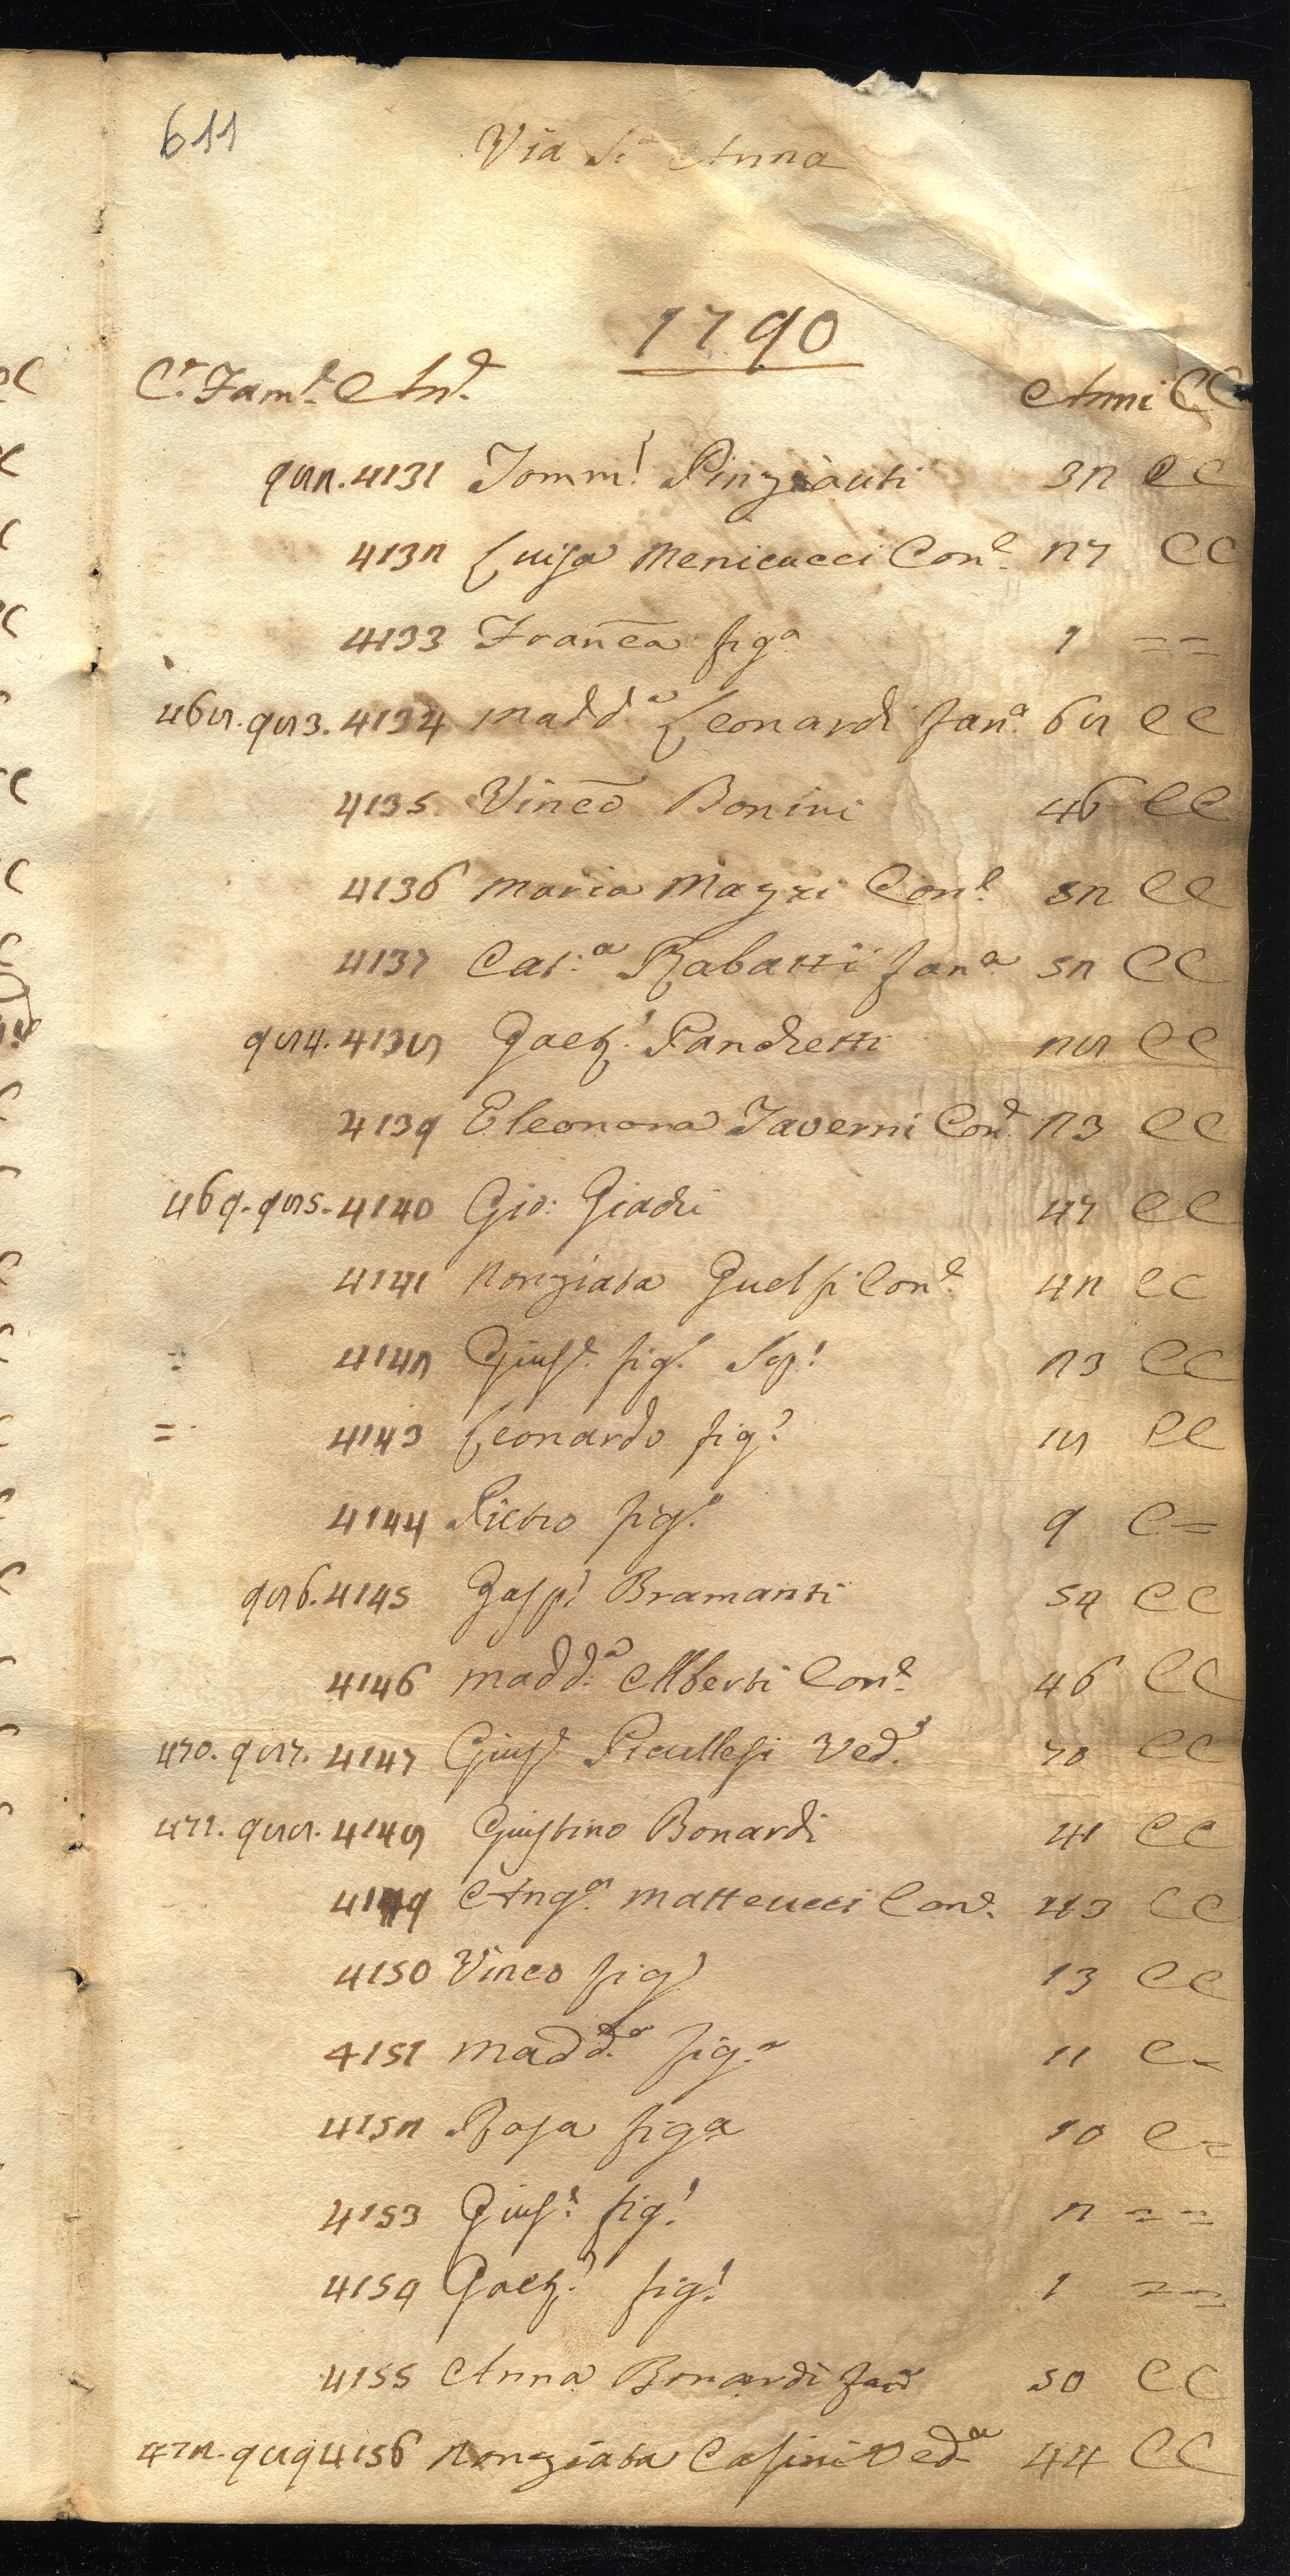 611
Via S.ª Anna
1790
C.ᵉ Fam.ᵉ An.ᵉ Anni CC
982. 4131 Tomm.º Pinziauti 32 CC
4132 Luisa Menicucci Con.ᵉ 27 CC
4133 Franc̄a fig.ª 1 = =
468. 983. 4134 Madd.ª Leonardi Fan.ª 68 CC
4135 Vinc̄o Bonini 46 CC
4136 Maria Mazzi Con.ᵉ 52 CC
4137 Cat.ª Rabatti Fan.ª 52 CC
984. 4138 Gaet.º Panchetti 28 CC
4139 Eleonora Taverni Con.ᵉ 23 CC
469. 985. 4140 Gio: Giachi 47 CC
4141 Nonziata Guelfi Con.ᵉ 42 CC
= 4142 Gius.ᵉ fig.º 23 CC
= 4143 Leonardo fig.º 18 CC
4144 Pietro fig.º 9 C =
986. 4145 Gasp.º Bramanti 54 CC
4146 Madd.ª Alberti Con.ᵉ 46 CC
470. 987. 4147 Gius.ᵉ Ved.º 70 CC
471. 988. 4148 Giustino Bonardi 41 CC
4149 Ang.ª Matteucci Con.ᵉ 43 CC
4150 Vinco fig.º 13 CC
4151 Madd.ª fig.ª 11 C =
4152 Rosa figa 10 C =
4153 Gius.ᵉ fig.º 2 = =
4154 Gaet.º fig.º 1 = =
4155 Anna Bonardi Fanª 50 CC
472. 989 4156 Nonziata Casini Vedª 44 CC